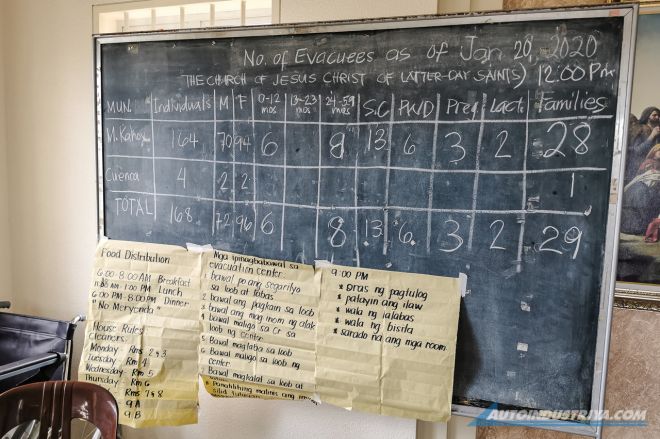 No. of Evacuees as of Jan 20, 2020
(THE CHURCH OF JESUS CHRIST OF LATTER-DAY SAINTS) 12:00 Pm
MUN. Individuals M F 0-12 mos 13-23 mos 24-59 mos S.C PWD Preg Lact. Families
M. Kahoy 164 70 94 6 8 13 6 3 2 28
Cuenca 4 2 2 1
TOTAL 168 72 96 6 8 13 6 3 2 29
Food Distribution
6:00-8:00 AM Breakfast
1:00 PM Lunch
6:00 PM-8:00 PM Dinner
"No Meryenda"
House Rules
Cleaners:
Monday - Rms 2 & 3
Tuesday - Rm 4
Wednesday - Rm 5
Thursday Rm 6
Rms 7 & 8
9 A
9 B
Mga ipinagbabawal sa
evacuation center.
1 bawal po ang segarilya
sa loob at labas
2 bawal ang pagkain sa loob
3 bawal ang mag inom ng alak
4 Bawal maligo sa Cr sa
loob ng Center
5 Bawal maglaba sa loob
6 Bawal maligo sa loob ng
center
Bawal magkalat sa loob at
8 Panatilihing malinis ang
9:00 PM
* Oras ng pagtulog
* patayin ang ilaw
* wala ng lalabas
* wala ng bisita
* sarado na ang mga room
AUTOINDUSTRIYA.COM